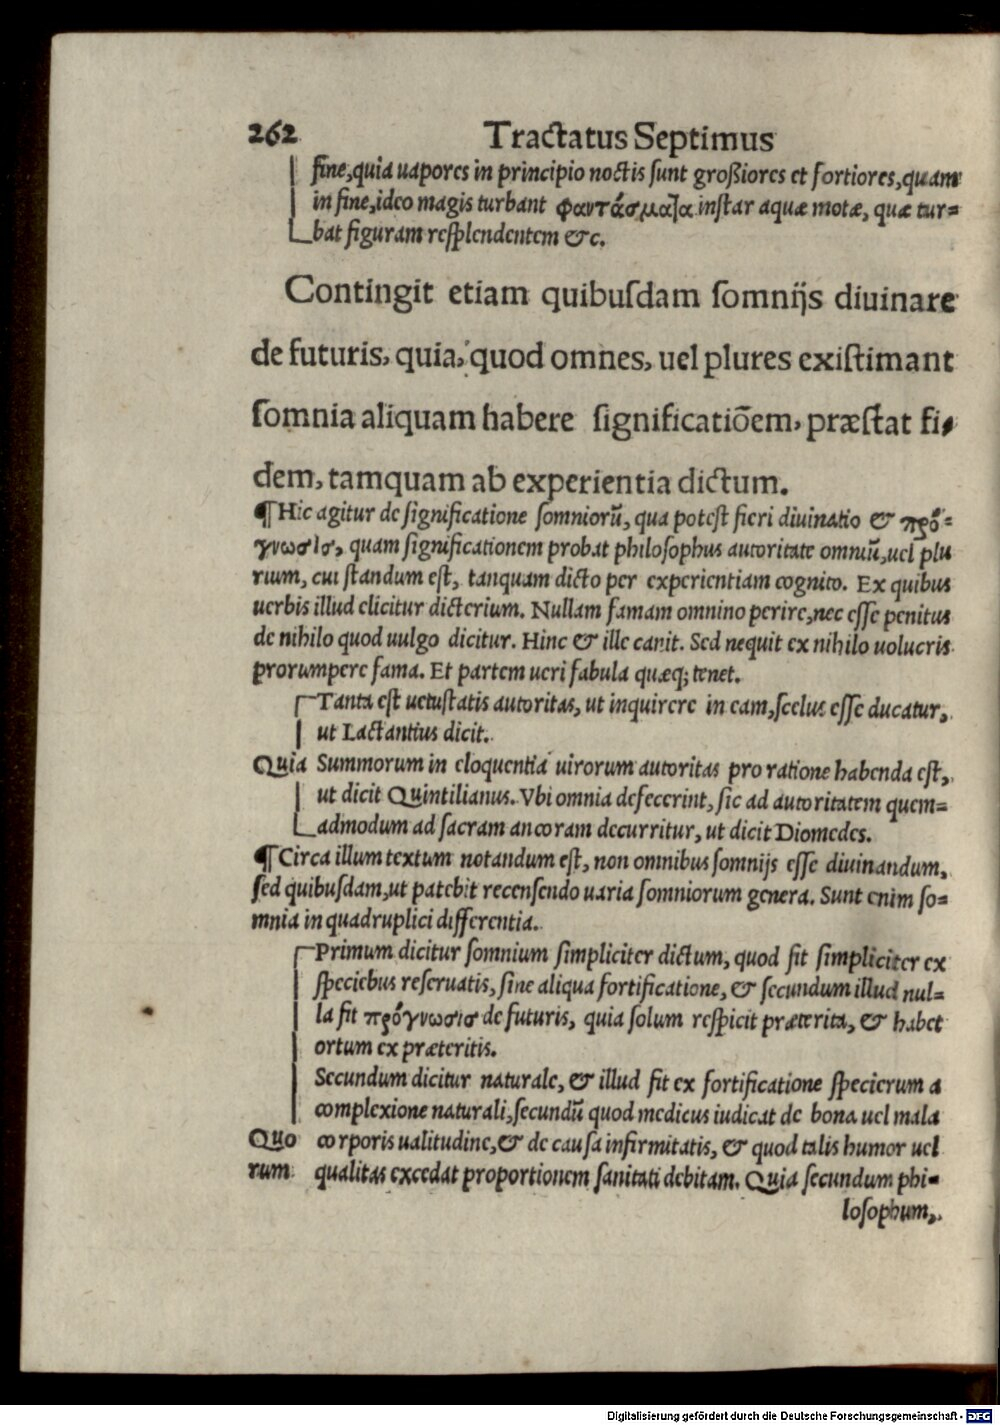 262 Tractatus Septimus
fine,quia uapores in principio noctis sunt großiores et fortiores,quam
in fine,ideo magis turbant φαντάσματα instar aquæ motæ, quæ tur=
bat figuram resplendentem &c.
Contingit etiam quibusdam somnijs diuinare
de futuris, quia, quod omnes, uel plures existimant
somnia aliquam habere significatiõem, præstat fi,
dem, tamquam ab experientia dictum.
¶Hic agitur de significatione somniorũ, qua potest fieri diuinatio & πρό=
γνωσις, quam significationem probat philosophus autoritate omniũ,uel plu
rium, cui standum est, tanquam dicto per experientiam cognito. Ex quibus
uerbis illud elicitur dicterium. Nullam famam omnino perire,nec esse penitus
de nihilo quod uulgo dicitur. Hinc & ille canit. Sed nequit ex nihilo uolucris
prorumpere fama. Et partem ueri fabula quæq; tenet.
Tanta est uetustatis autoritas, ut inquirere in eam,scelus esse ducatur,
ut Lactantius dicit.
Quia Summorum in eloquentia uirorum autoritas pro ratione habenda est,
ut dicit Quintilianus. Vbi omnia defecerint, sic ad autoritatem quem=
admodum ad sacram ancoram decurritur, ut dicit Diomedes.
¶Circa illum textum notandum est, non omnibus somnijs esse diuinandum,
sed quibusdam,ut patebit recensendo uaria somniorum genera. Sunt enim so=
mnia in quadruplici differentia.
Primum dicitur somnium simpliciter dictum, quod fit simpliciter ex
speciebus reseruatis, sine aliqua fortificatione, & secundum illud nul=
la fit πρόγνωσις de futuris, quia solum respicit præterita, & habet
ortum ex præteritis.
Secundum dicitur naturale, & illud fit ex fortificatione specierum a
complexione naturali,secundũ quod medicus iudicat de bona uel mala
Quo corporis ualitudine,& de causa infirmitatis, & quod talis humor uel
rum qualitas excedat proportionem sanitati debitam. Quia secundum phi=
losophum,
Digitalisierung gefördert durch die Deutsche Forschungsgemeinschaft - DFG